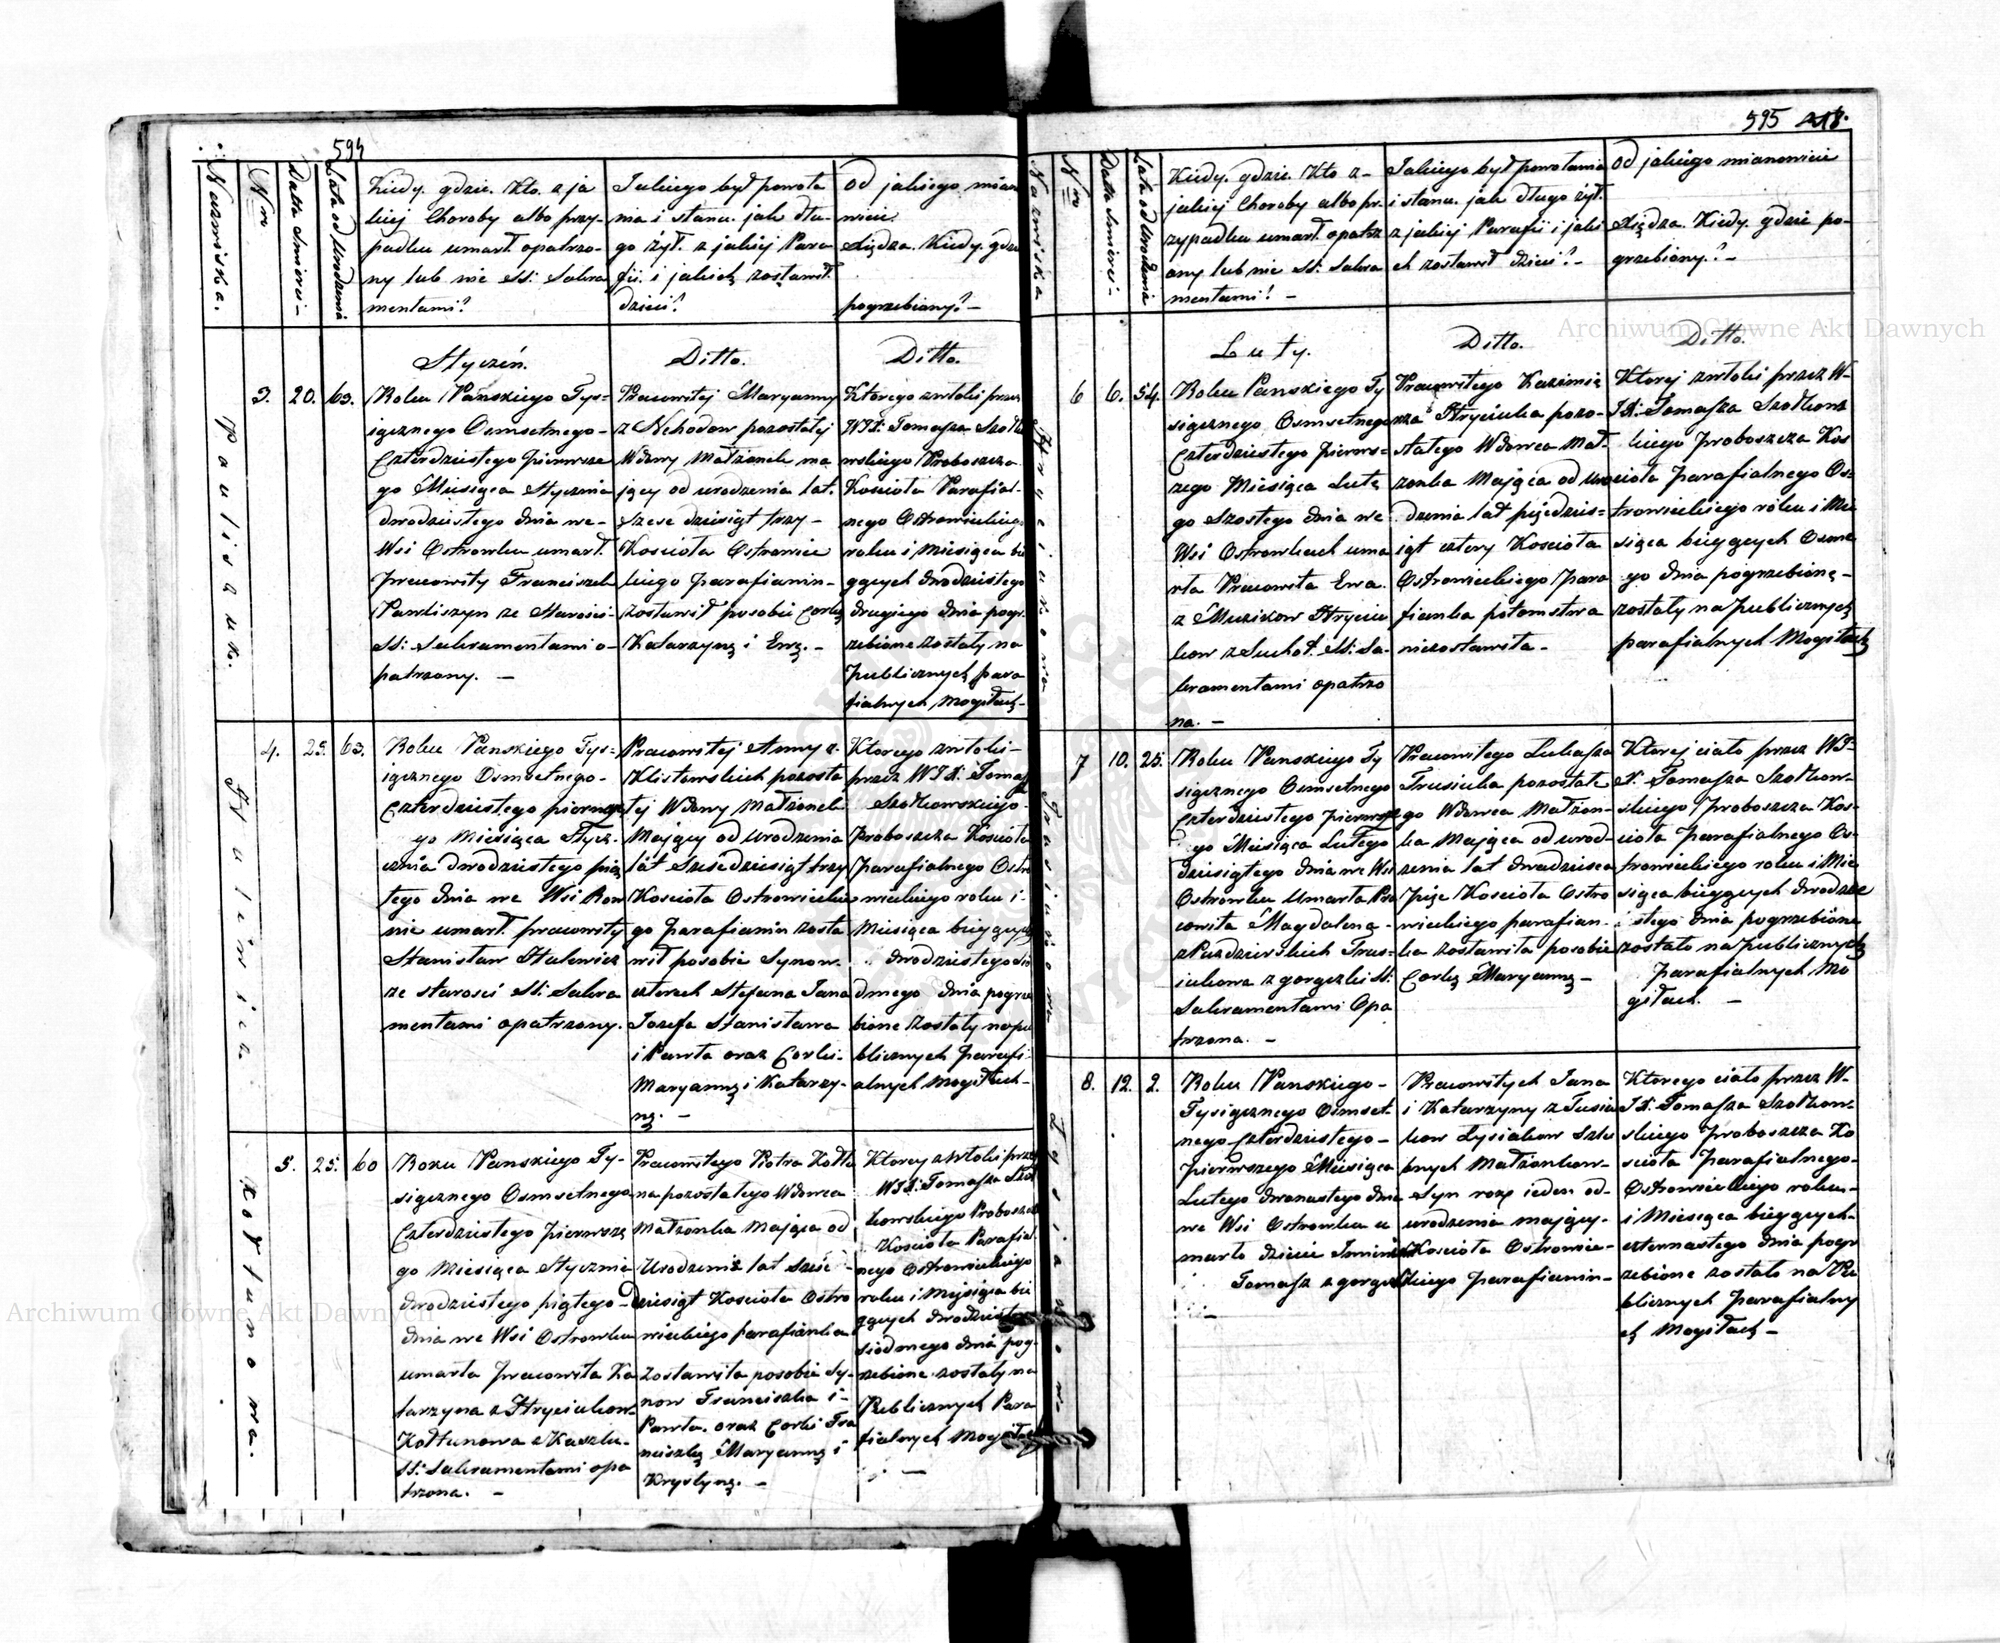 594
Nazwiska.
Nro
Datta Smierci
Lata od Urodzenia
Kiedy. gdzie. Kto. z ja
kiej Choroby albo przy-
padku umarł. opatrzo-
ny lub nie SS: Sakra
mentami?
Jakiego był powoła
nia i stanu. jak dłu-
go żył. z jakiej Para
fii. i jakich zostawił.
dzieci?
Od jakiego miano
wicie.
Xiędza. Kiedy. gdzie
pogrzebiony? -
Styczeń.
Ditto.
Ditto.
3. 20. 63.
Roku Pańskiego Tys-
iącznego Osmsetnego-
Czterdziestego pierwsze
go Miesiąca Stycznia
dwodziestego dnia we-
Wsi Ostrowku umarł.
pracowity Franciszek
Pawliszyn ze Starości-
SS: Sakramentami o-
patrzony. -
Pracowitej Maryanny
z Nehodow pozostałej
Wdowy Małżonek ma
jący od urodzenia lat.
szesc dziesiąt trzy -
Kosciola Ostrowiec
kiego parafianin-
zostawił posobie Corkę
Katarzynę i Ewę. -
Ktorego zwłoki przez
WJX: Tomasza Szołko
wskiego Proboszcza
Kosciola Parafial-
nego Ostrowieckiego
roku i Miesiąca bie
ących dwodziestego
drugiego dnia pogr-
zebione zostały na
publicznych para
fialnych Mogiłach-
4. 25. 63.
Roku Panskiego Tys-
iącznego Osmsetnego-
Czterdziestego pierwsze
go Miesiąca Stycz-
znia dwodziestego pią
tego dnia we Wsi Row
nie umarł. pracowity
Stanisław Halewicz
ze starosci SS: Sakra
mentami opatrzony.
Pracowitej Anny z.
Klisławskich pozosta
łej Wdowy Małżonek
Mający od Urodzenia
lat Sześćdziesiąt trzy
Kosciola Ostrowiecki
go parafianin zosta
wił posobie Synow
czterech Stefana Jana
Jozefa Stanisława
i Pawła oraz Corki-
Maryannę i Katarzy-
nę. -
Ktorego zwłoki-
przez WJX: Tomasz
Szołkowskiego-
Proboszcza Kosciola
parafialnego Ostro
wieckiego roku i-
Miesiąca bieących
dwodziestego sio
dmego dnia pogrze
bione zostały napu
blicznych parafi-
alnych Mogiłach-
5. 25. 60
Kołtunowa.
Roku Panskiego Ty-
siącznego Osmsetnego
Czterdziestego pierwsze
go Miesiąca Stycznia
dwodziestego piątego-
dnia we Wsi Ostrowku
umarła pracowita Ka
tarzyna z Hryciukow-
Kołtunowa z Kaszlu-
SS: Sakramentami opa
trzona. -
Pracowitego Piotra Kołtu
na pozostałego Wdowca
Małzonka Mająca od
Urodzenia lat Sześć
dziesiąt Kosciola Ostro
wieckiego parafianka
Zostawiła posobie Sy-
now Franciszka i-
Pawła. oraz Corki Fra
nciszkę Maryannę i
Krystynę. -
Ktorey zwłoki przez
WJX: Tomasza Szoł
kowskiego Proboszcza
Kosciola Parafial-
nego Ostrowieckiego
roku i Miesiąca bie
ących dwodziestego
siodmego dnia pog-
rzebione zostały na
Publicznych Para
fialnych Mogiłach
-
595
Nazwiska
Nro
Datta Smierci-
Lata od Urodzenia
Kiedy. gdzie. Kto z-
jakiej Choroby albo pr-
zypadku umarł. opatrz
ony lub nie SS: Sakra
mentami! -
Jakiego był powołania
i stanu. jak długo żył.
z jakiej Parafii i jaki
ch zostawił dzieci? -
Od jakiego mianowicie
Xiędza. Kiedy. gdzie po-
grzebiony? -
Luty.
Ditto.
Ditto.
6 6. 54.
Roku Panskiego Ty
siącznego Osmsetnego
Czterdziestego pierws-
zego Miesiąca Lute
go Szostego dnia we
Wsi Ostrowkuch uma
rła Pracowita Ewa.
z Muzikow Hryciu
kow z Suchot. SS: Sa-
kramentami opatrzo
na. -
Pracowitego Kazimie
rza Hryciuka pozo-
stałego Wdowca Mał-
zonka Mająca od Uro
dzenia lat pięcdzies-
iąt cztery Kosciola
Ostrowieckiego para
fianka potomstwa
niezostawiła -
Ktorej zwłoki przez W-
JX: Tomasza Szołkows
kiego Proboszcza Kos
ciola parafialnego Os-
trowieckiego roku i Mie
siąca bieących Osme
go dnia pogrzebione-
zostały na publicznych
parafialnych Mogiłach
7 10. 25.
Roku Panskiego Ty
siącznego Osmsetnego
Czterdziestego pierwsze
go Miesiąca Lutego
dziesiątego dnia we Wsi
Ostrowku Umarła Pra
cowita Magdalena-
z Puzdzierskich Trus-
iukowa z gorączki SS:
Sakramentami Opa
trzona. -
Pracowitego Lukasza
Trusiuka pozostałe
go Wdowca Małzon-
ka Mająca od urod-
zenia lat dwadziescia
pięc Kosciola Ostro
wieckiego parafian-
ka zostawiła posobie
Corkę Maryannę -
Ktorej ciało przez WJ-
X: Tomasza Szołkow-
skiego Proboszcza Kos-
ciola parafialnego Os-
trowieckiego roku i Mie
siąca bieących dwodzie
stego dnia pogrzebione
zostało na publicznych
parafialnych Mo
giłach. -
8. 12. 2.
Roku Panskiego-
Tysiącznego Osmset-
nego Czterdziestego-
pierwszego Miesiąca
Lutego dwonastego dnia
we Wsi Ostrowku u
marło dziecie Imieniem
Tomasz z gorączki
Pracowitych Jana
i Katarzyny z Tusiu
kow Lysiakow Szlu
bnych Małzonkow-
Syn roz ieden od-
urodzenia mający-
Kosciola Ostrowie-
ckiego parafianin-
Ktorego ciało przez W-
JX: Tomasza Szołkow-
skiego Proboszcza Ko
sciola Parafialnego-
Ostrowieckiego roku-
i Miesiąca bieących-
czternastego dnia pogr
zebione zostało na Pu
blicznych Parafialny
ch Mogiłach -
Archiwum Główne Akt Dawnych
Archiwum Główne Akt Dawnych